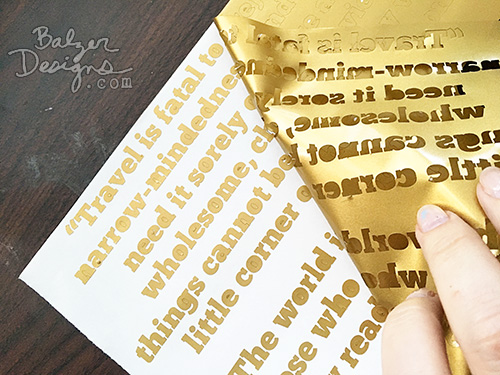 Balzer
Designs
.com
“Travel is fatal to
narrow-mindedne
need it sorely o
wholesome, ch
things cannot be
little corner o
The world i
ese who
read
“Travel is fatal
narrow-minde
need it sorely
wholesome,
ngs cannot be
little corner
world
who